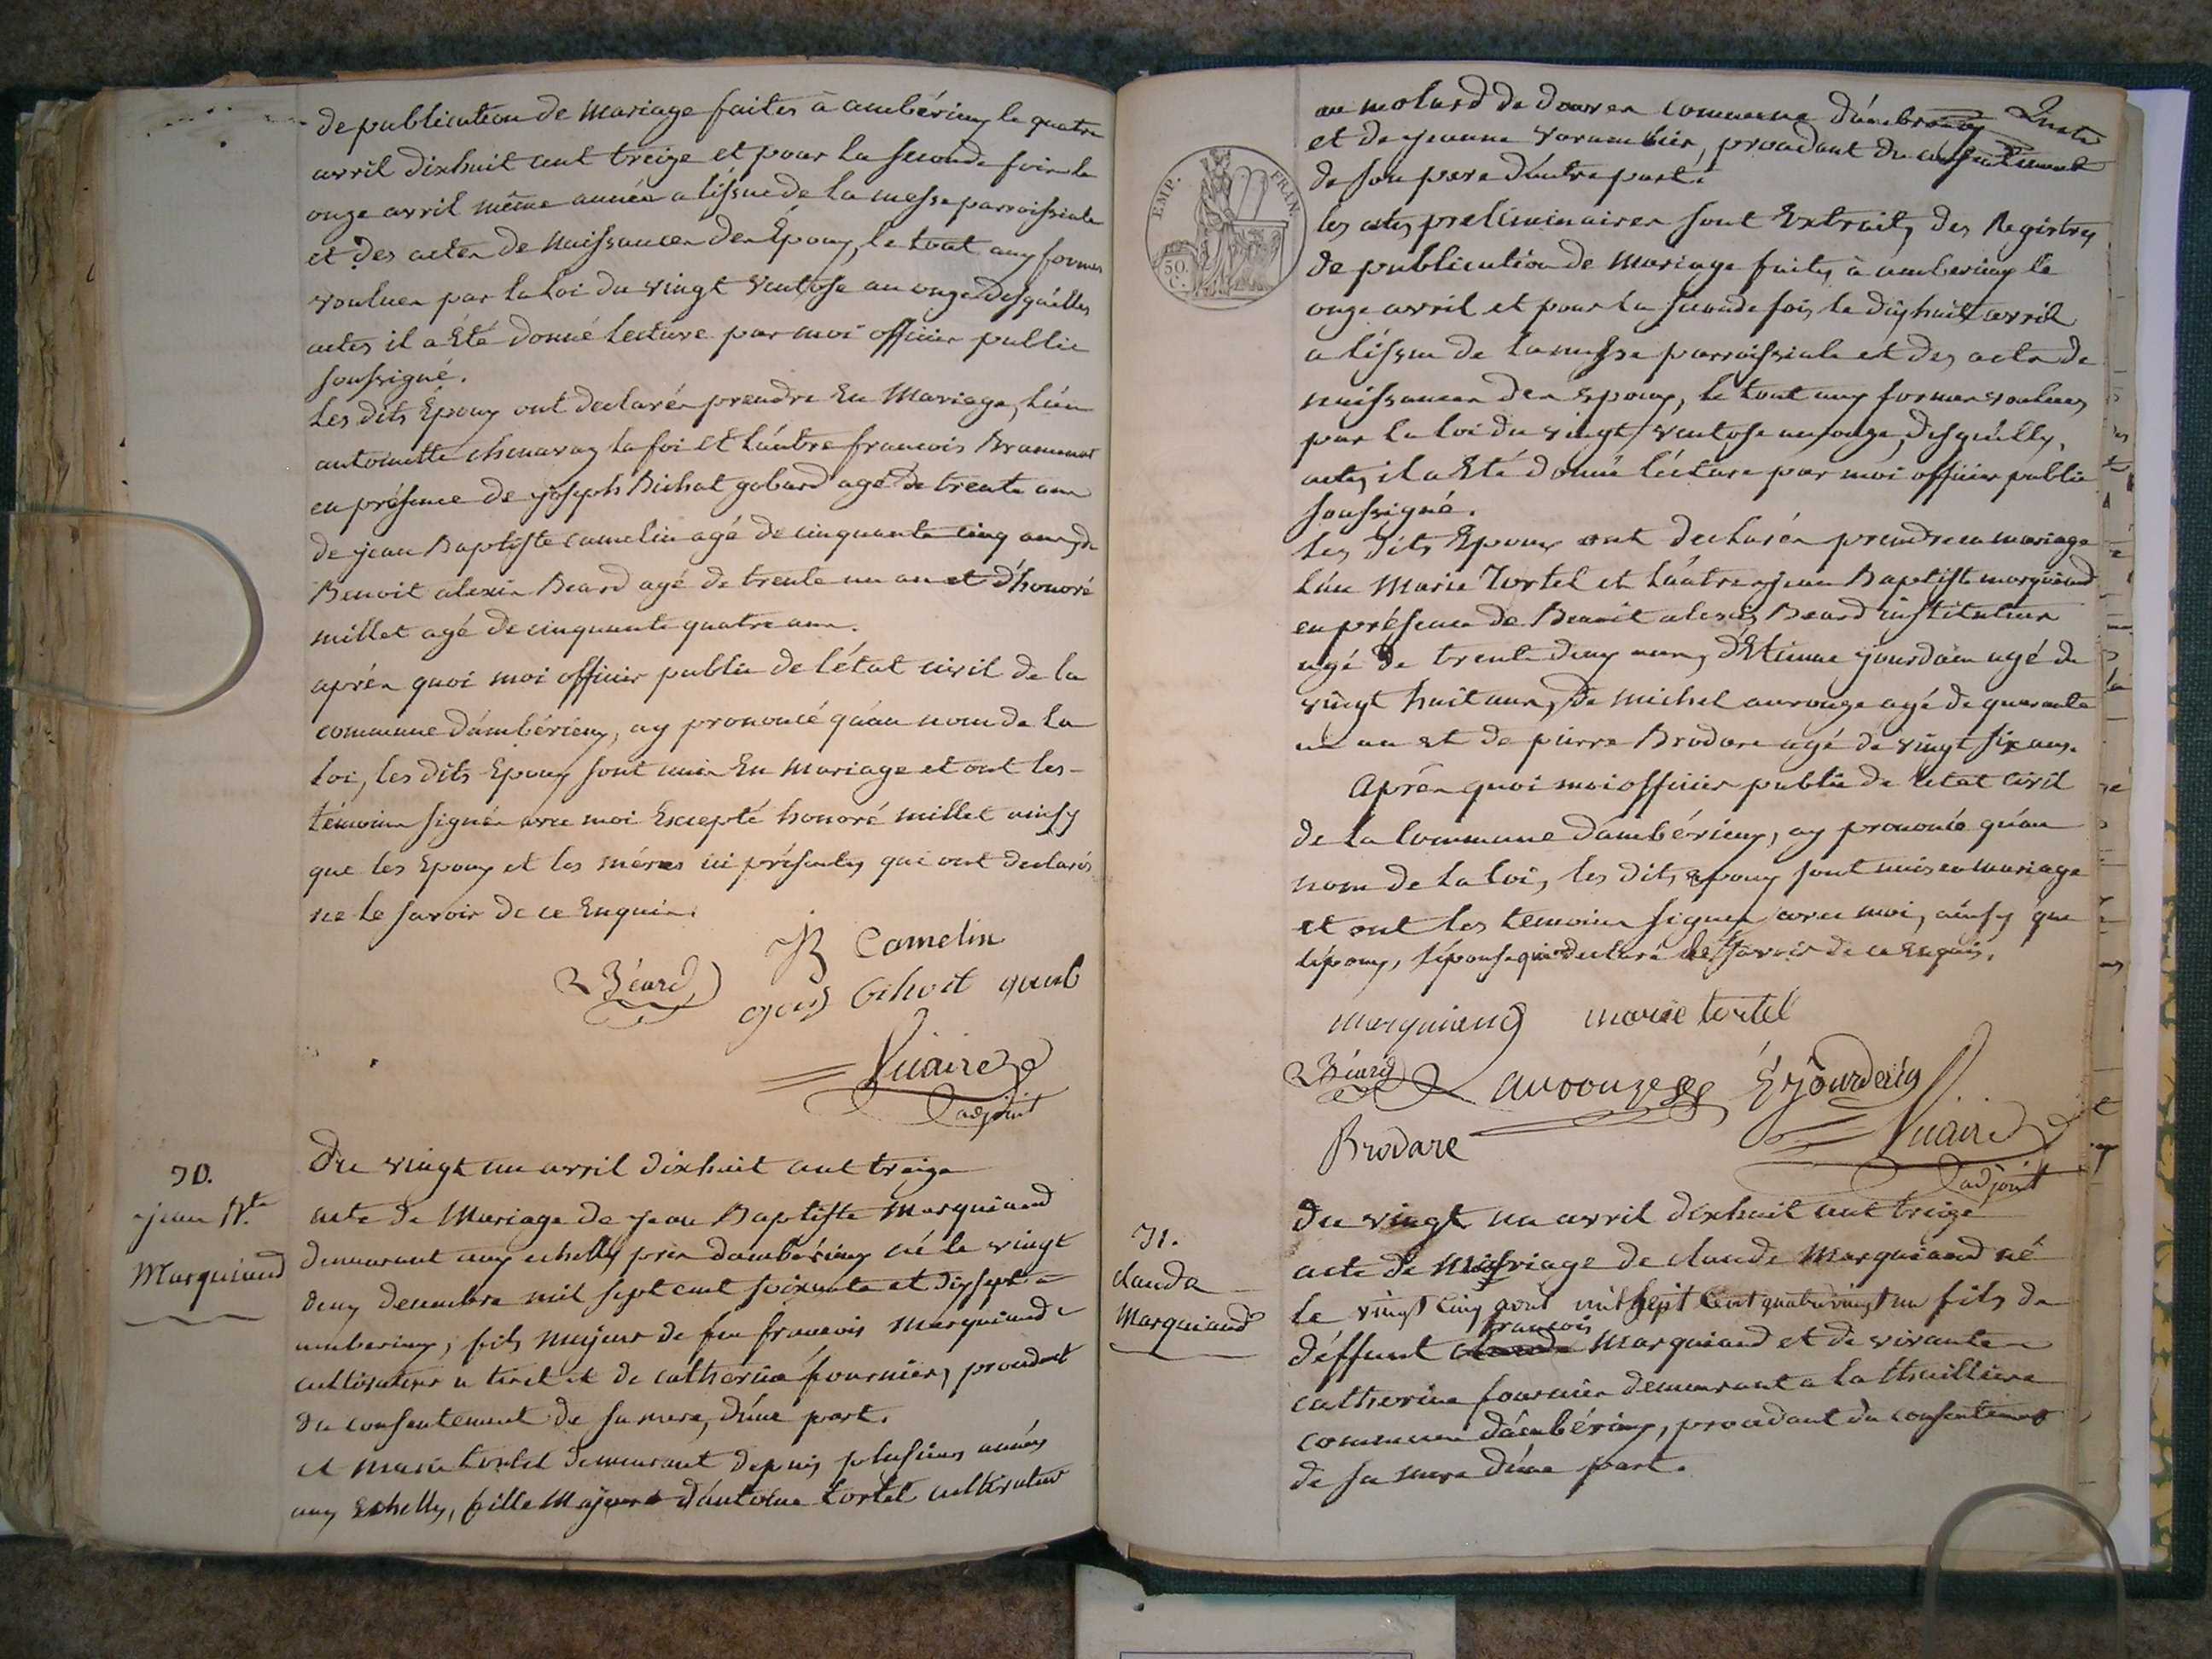 de publication de mariage faites à ambérieux le quatre
avril dixhuit cent treize et pour la seconde fois le
onze avril même année a l'issue de la messe parroissiale
et des actes de naissances des Époux, le tout aux formes
voulues par la loi du vingt ventose an onze desquelles
actes il a été donné lecture par moi officier public
soussigné.
Les dits Époux ont declarés prendre En Mariage, l'un
antoinette chenavaz la foi et l'autre francois Brammat
en présence de joseph Bichat gobard agé de trente ans
de jean Baptiste camelin agé de cinquante cinq ans, de
Benoit alexis Beard agé de trente un an et d'honoré
millet agé de cinquante quatre ans.
après quoi moi officier public de l'état civil de la
commune d'ambérieux, ay prononcé qu'au nom de la
loi, les dits Epoux sont unis En Mariage et ont les
témoins signés avec moi Excepté honoré millet ainsy
que les Epoux et les mères ici présentes qui ont declarés
ne le savoir de ce Enquis.
JB Camelin
Béard
Vicaire
adjoint
30.
jean Bte
Marquiand
Du vingt un avril dixhuit cent treize
acte de Mariage de jean Baptiste Marquiand
demeurant aux echelles près d'ambérieux né le vingt
deux decembre mil sept cent soixante et dixsept a
amberieux, fils majeur de feu francois Marquiand
cultivateur a tiret et de catherine fournier, procedant
du consentement de sa mere, d'une part.
et marie tortel demeurant depuis plusieurs années
aux Echelles, fille Majeure d'antoine tortel cultivateur
au molard de douvres commune d'ambronay
et de jeanne varambier, procedant du consentement
de son pere d'autre part.
les actes preliminaires sont Extraits des Registres
de publication de Mariage faites à amberieux le
onze avril et pour la seconde fois le dixhuit avril
a l'issue de la messe parroissiale et des actes de
naissances des Epoux, le tout aux formes voulues
par la loi du vingt ventose an onze, desquelles
actes il a Eté donné lecture par moi officier public
soussigné.
Les dits Epoux ont declarés prendre en mariage
l'un Marie Tortel et l'autre jean Baptiste marquiand
en présence de Benoit alexis Beard instituteur
agé de trente deux ans, d'Etienne jourdain agé de
vingt huit ans, de michel aurouze agé de quarante
un an et de pierre Brodare agé de vingt six ans.
Après quoi moi officier public de l'etat civil
de la Commune d'ambérieux, ay prononcé qu'au
nom de la loi, les dits epoux sont unis en mariage
et ont les temoins signés avec moi, ainsy que
l'epoux, l'épouse qui a declaré le savoir de ce Enquis.
marquiand marie tortel
Béard aurouze E jourdain
Brodare Vicaire
adjoint
31.
claude
Marquiand
Du vingt un avril dixhuit cent treize
acte de Mariage de claude Marquiand né
le vingt cinq aout mil sept cent quatrevingt un fils de
francois
déffunt claude Marquiand et de vivante
catherine fournier demeurant a la thuilliere
commune d'ambérieux, procedant du consentement
de sa mere d'une part.
EMP. FRAN.
50. C.